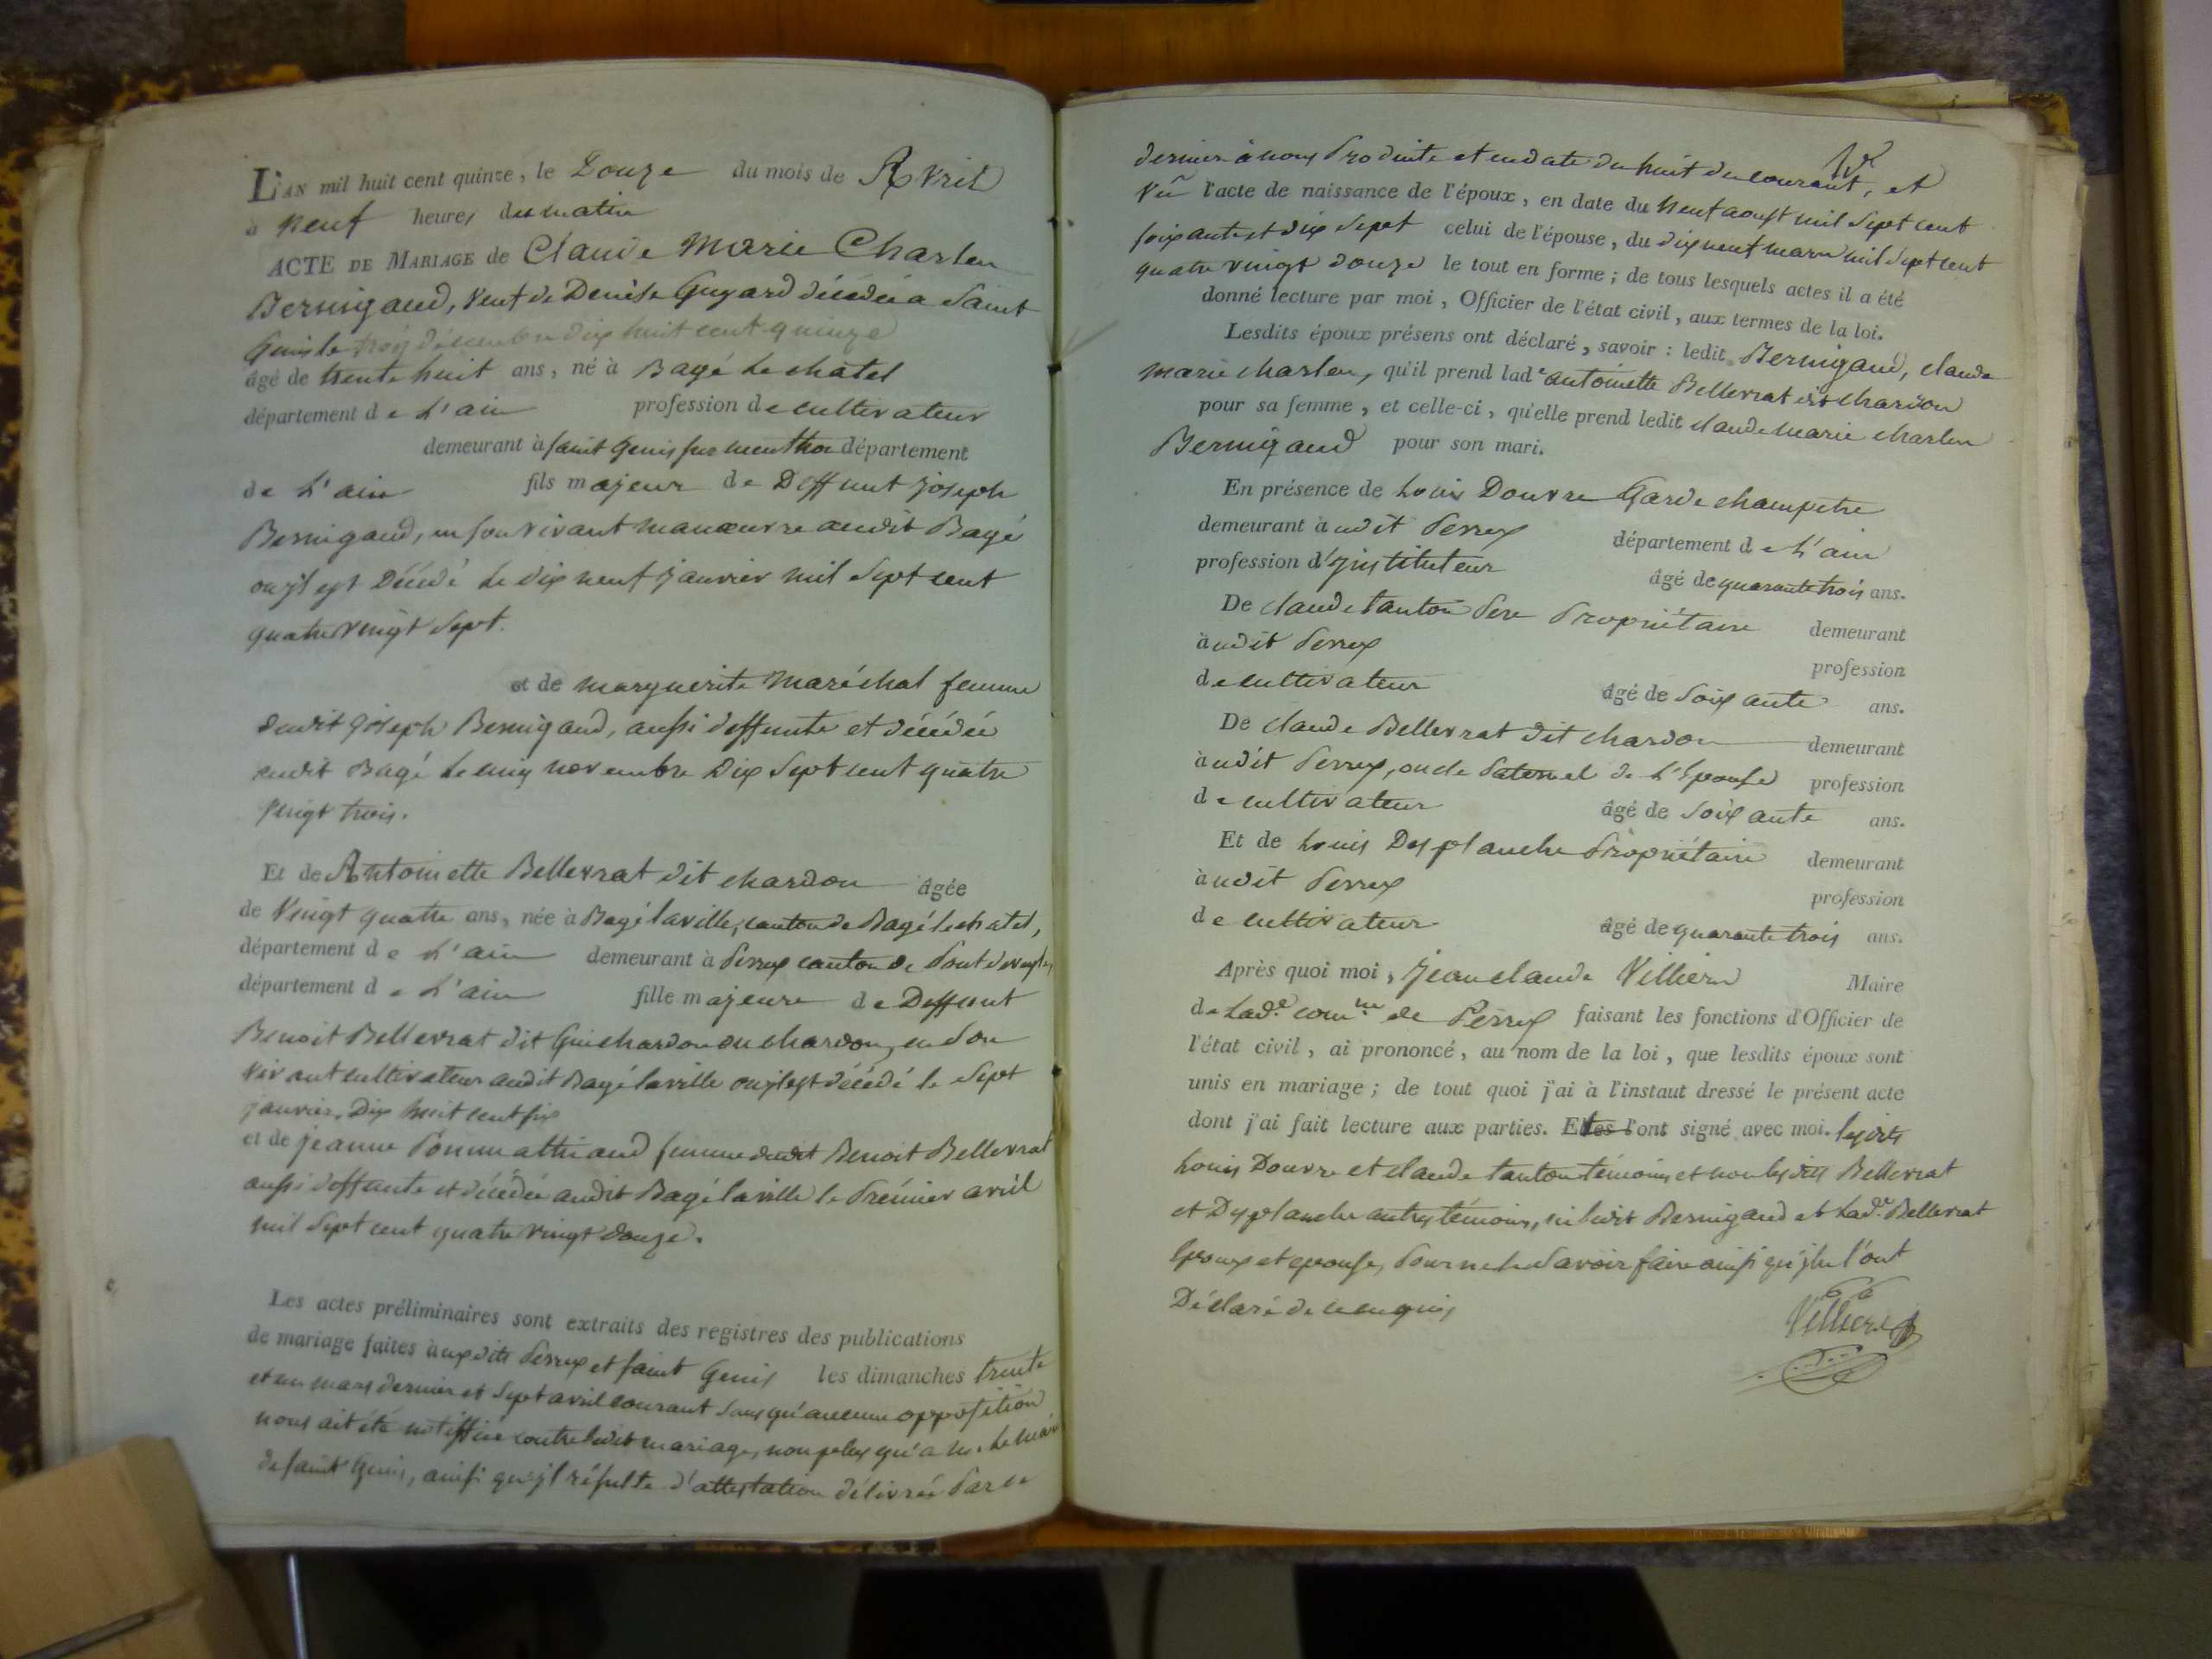 L'AN mil huit cent quinze, le Douze du mois de Avril
à neuf heures du matin
ACTE DE MARIAGE de Claude Marie Charles
Bernigaud, veuf de Denise Guyard décédée a Saint
Genis le troij décembre dix huit cent quinze
âgé de trente huit ans, né à Bagé Le chatel
département de L'ain profession de cultivateur
demeurant à saint Genis sur menthon département
de L'ain fils majeur de Deffunt joseph
Bernigaud, en son vivant manœuvre audit Bagé
ou jl est Décédé Le dix neuf janvier mil Sept cent
quatre vingt Sept.
et de marguerite Maréchal femme
dudit joseph Bernigaud, aussi deffunte et décédée
audit Bagé Le cinq novembre Dix Sept cent quatre
vingt trois.
Et de Antoinette Bellevrat dit chardon âgée
de Vingt quatre ans, née à Bagé laville, canton de Bagé lechatel,
département de L'ain demeurant à Perrex canton de Pont deveyle
département de L'ain fille majeure de Deffunt
Benoit Bellevrat dit Guichardon ou chardon, en Son
vivant cultivateur audit Bagé laville ou jl est décédé le Sept
janvier, Dix huit cent six
et de jeanne Pommathiaud femme dudit Benoit Bellevrat
aussi deffunte et décédée audit Bagé laville le Premier avril
mil Sept cent quatre vingt douze.
Les actes préliminaires sont extraits des registres des publications
de mariage faites à uxdits Perrex et saint Genis les dimanches trente
et un mars dernier et Sept avril courant Sans qu'aucune opposition
nous ait été notiffiée contre ledit mariage, non plus qu'a m. Le Maire
de saint Genis, ainsi qu'jl résulte d'attestation délivrée Par ce
dernier à nous Produite et en date du huit du courant, et
Vu l'acte de naissance de l'époux, en date du neuf aoust mil Sept cent
soixante et dix Sept celui de l'épouse, du dix neuf mars mil Sept cent
quatre vingt douze le tout en forme; de tous lesquels actes il a été
donné lecture par moi, Officier de l'état civil, aux termes de la loi.
Lesdits époux présens ont déclaré, savoir : ledit Bernigaud, claude
marie charles, qu'il prend lade antoinette Bellevrat dit chardon
pour sa femme, et celle-ci, qu'elle prend ledit claude marie charles
Bernigaud pour son mari.
En présence de Louis Douvre Garde champetre
demeurant à udit Perrex département de L'ain
profession d'jnstituteur âgé de quarante trois ans.
De claude tanton Pere Propriétaire demeurant
à udit Perrex profession
de cultivateur âgé de Soixante ans.
De claude Bellevrat dit chardon demeurant
à udit Perrex, oncle Paternel de L'Epouse profession
de cultivateur âgé de Soixante ans.
Et de Louis Desplanche Propriétaire demeurant
à udit Perrex profession
de cultivateur âgé de quarante trois ans.
Après quoi moi, jean claude Villiers Maire
de Lade. comne de Perrex faisant les fonctions d'Officier de
l'état civil, ai prononcé, au nom de la loi, que lesdits époux sont
unis en mariage; de tout quoi j'ai à l'instaut dressé le présent acte
dont j'ai fait lecture aux parties. Elles l'ont signé avec moi. lesdits
Louis Douvre et claude tanton témoins et non lesdits Bellevrat
et Desplanche autres témoins, ni ledit Bernigaud et Lade. Bellevrat
Epoux et epouse, Pour ne le Savoir faire ainsi qu'jls l'ont
Déclaré de ce enquis
Villiers